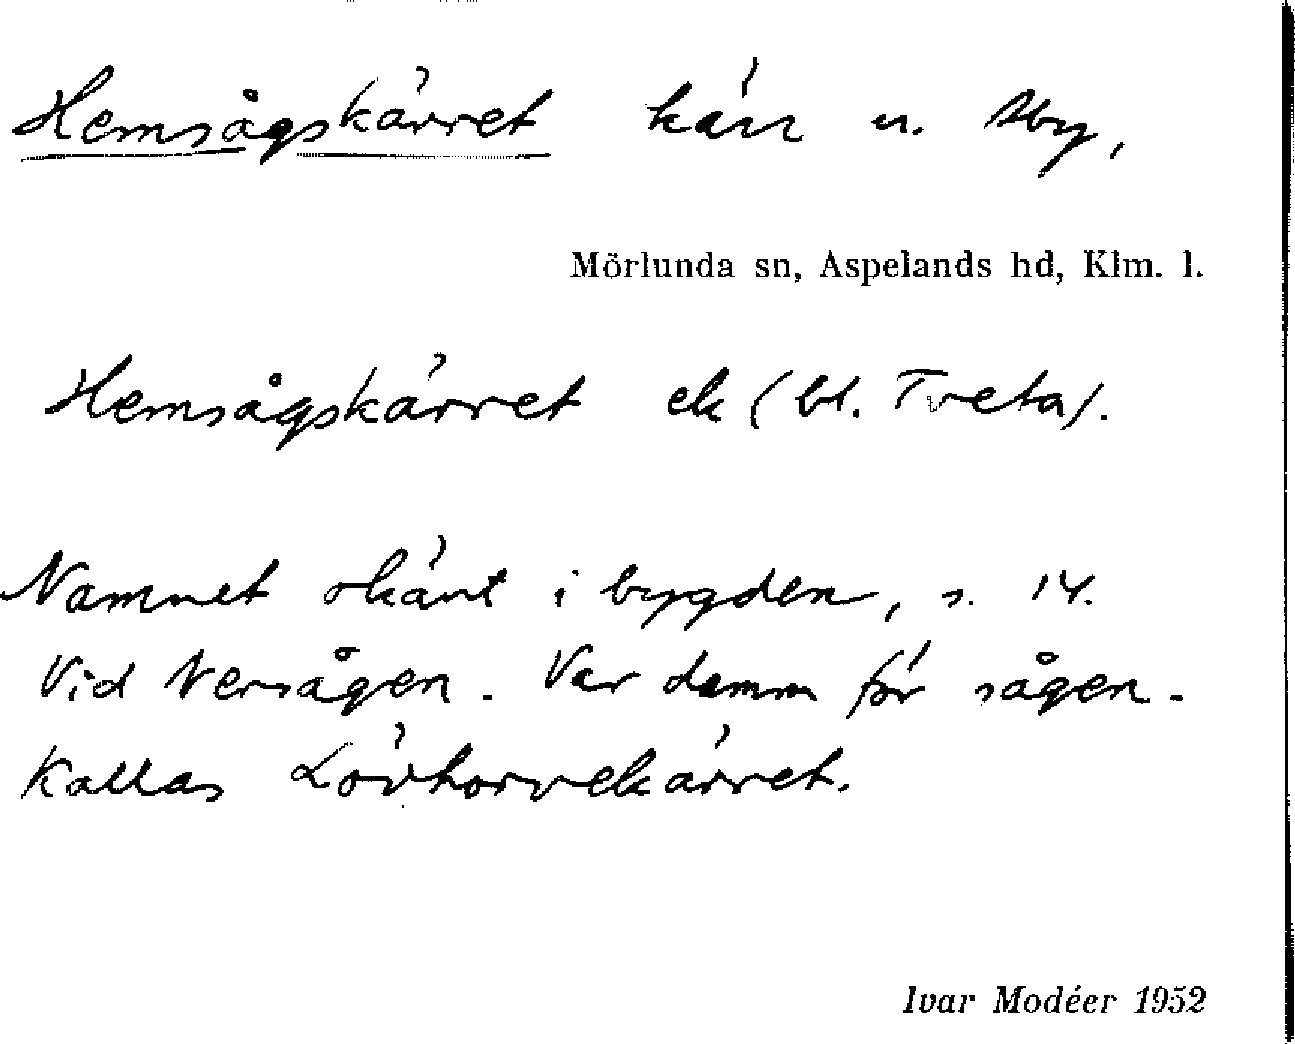 Hemsågskärret kärr u. Åby,
Mörlunda sn, Aspelands hd, Klm. l.
Hemsågskärret ek (bl. Tveta).
Namnet okänt i bygden, s. 14.
Vid Nersågen. Var damm för sågen.
Kallas Lövtorvekärret.
Ivar Modéer 1952